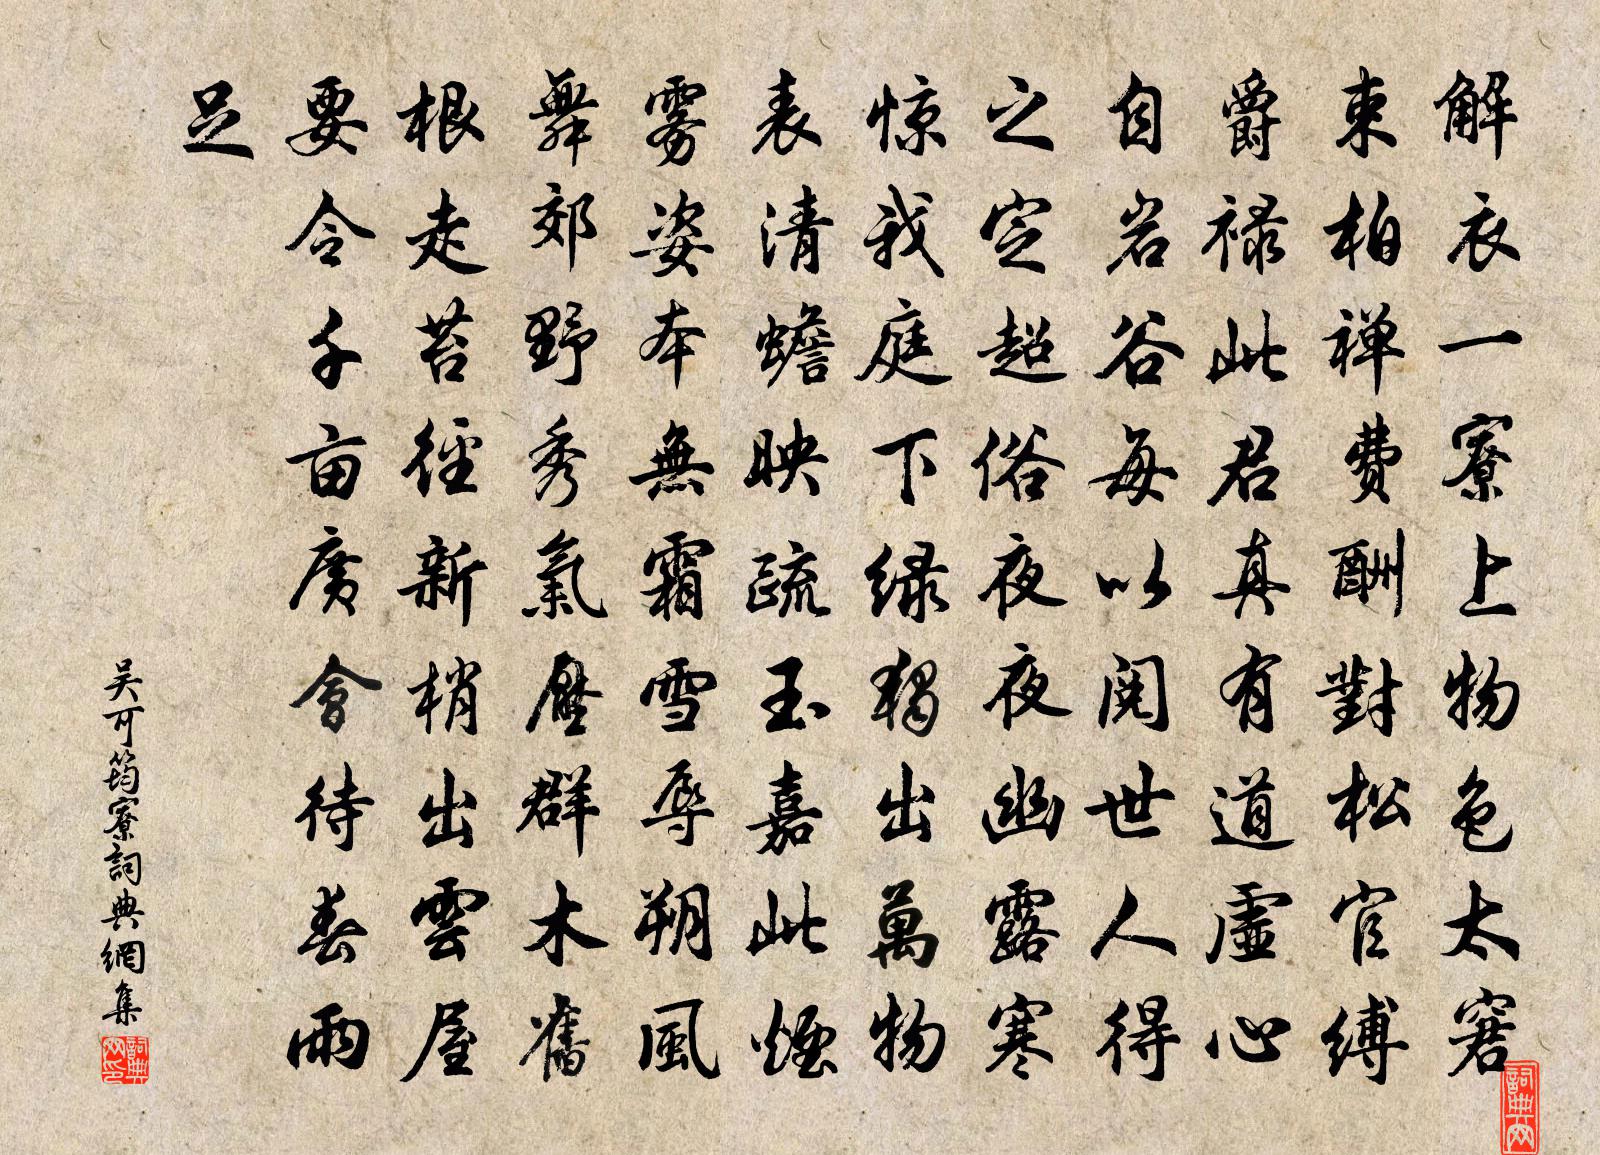 解衣一寮上物色太窘
束柏禅費酬對松官縛
爵禄此君真有道虛心
自岩谷每以閱世人得
之定超俗夜夜幽露寒
惊我庭下绿獨出萬物
表清蟾映疏玉嘉此煙
雾姿本無霜雪辱朔風
舞郊野秀氣壓群木舊
根走苔徑新梢出雲屋
要令千亩廣會待春雨
足
吴可筠寮詞典網集
詞典網印
詞典网